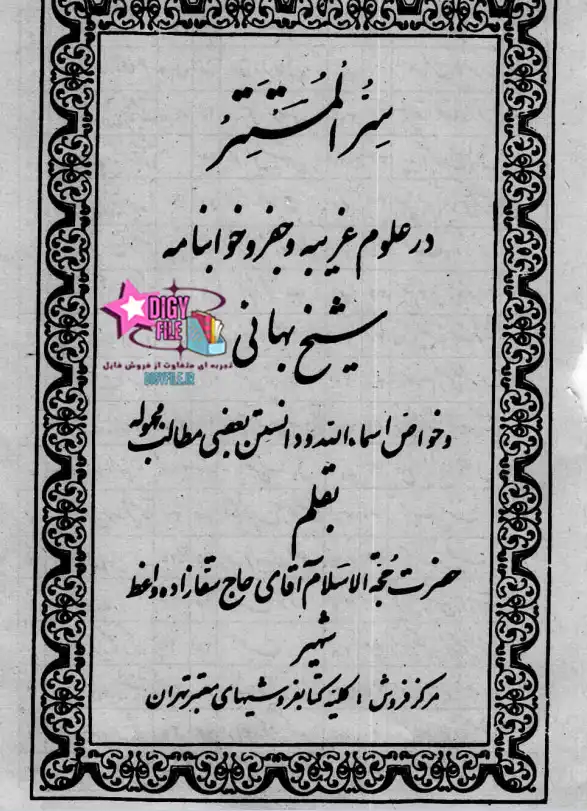 سِرُّ الْمُسْتَتِرُ
در علوم غریبه و جفر و خوابنامه
شیخ بهائی
DIGY
FILE
تجربه ای متفاوت از فروش فایل
DIGYFILE.IR
و خواص اسماء الله و دانستن بعضی مطالب مجهوله
بقلم
حضرت حُجّة الاسلام آقای حاج سقازاده واعظ
شهیر
مرکز فروش : کلیه کتابفروشیهای معتبر تهران